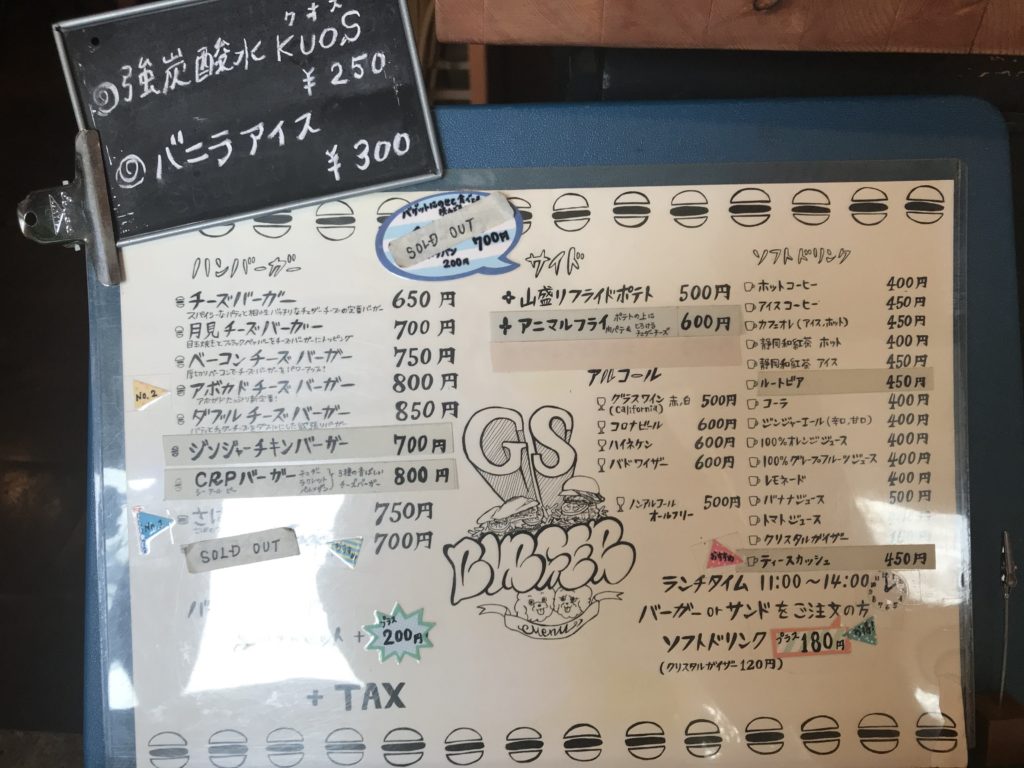 クオス
強炭酸水 KUOS
¥250
バニラアイス
¥300
SOLD OUT
700円
200円
ハンバーガー
チーズバーガー 650円
月見チーズバーガー 700円
ベーコンチーズバーガー 750円
No.2
アボカドチーズバーガー 800円
ダブルチーズバーガー 850円
ジンジャーチキンバーガー 700円
CRPバーガー 800円
シーアールピー
チェダー
ラクレット
パルメザン
3種の香ばしい
チーズバーガー
No.3
さば 750円
SOLD OUT
700円
プラス
200円
+ TAX
サイド
山盛りフライドポテト 500円
アニマルフライ 600円
ポテトの上に
アルコール
グラスワイン 赤,白 500円
(California)
コロナビール 600円
ハイネケン 600円
バドワイザー 600円
ノンアルコール 500円
オールフリー
GS
BURGER
Menu
ソフトドリンク
ホットコーヒー 400円
アイスコーヒー 450円
カフェオレ(アイス,ホット) 450円
静岡和紅茶 ホット 400円
静岡和紅茶 アイス 450円
ルートビア 450円
コーラ 400円
ジンジャーエール(辛口,甘口) 400円
100%オレンジジュース 400円
100%グレープフルーツジュース 400円
レモネード 400円
バナナジュース 500円
トマトジュース
クリスタルガイザー
おすすめ
ティースカッシュ 450円
ランチタイム 11:00〜14:00
バーガー or サンドをご注文の方
ソフトドリンク プラス 180円
(クリスタルガイザー 120円)